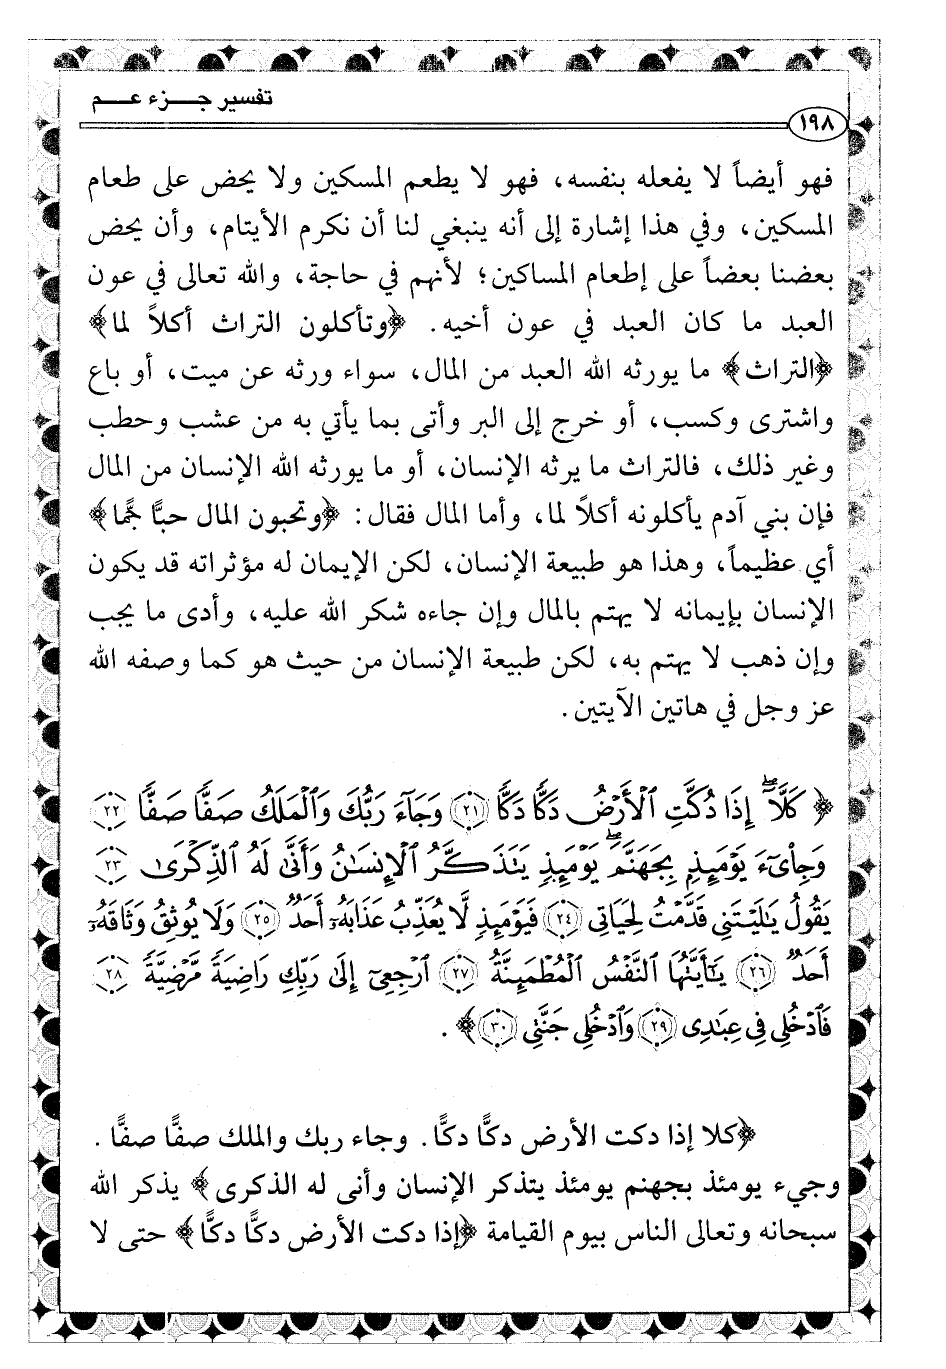 تفسير جـــزء عـــم
١٩٨
فهو أيضاً لا يفعله بنفسه، فهو لا يطعم المسكين ولا يحض على طعام
المسكين، وفي هذا إشارة إلى أنه ينبغي لنا أن نكرم الأيتام، وأن يحض
بعضنا بعضاً على إطعام المساكين؛ لأنهم في حاجة، والله تعالى في عون
العبد ما كان العبد في عون أخيه. ﴿وتأكلون التراث أكلاً لما﴾
﴿التراث﴾ ما يورثه الله العبد من المال، سواء ورثه عن ميت، أو باع
واشترى وكسب، أو خرج إلى البر وأتى بما يأتي به من عشب وحطب
وغير ذلك، فالتراث ما يرثه الإنسان، أو ما يورثه الله الإنسان من المال
فإن بني آدم يأكلونه أكلاً لما، وأما المال فقال: ﴿وتحبون المال حبًّا جمًّا﴾
أي عظيماً، وهذا هو طبيعة الإنسان، لكن الإيمان له مؤثراته قد يكون
الإنسان بإيمانه لا يهتم بالمال وإن جاءه شكر الله عليه، وأدى ما يجب
وإن ذهب لا يهتم به، لكن طبيعة الإنسان من حيث هو كما وصفه الله
عز وجل في هاتين الآيتين.
﴿ كَلَّآۖ إِذَا دُكَّتِ ٱلۡأَرۡضُ دَكّٗا دَكّٗا ٢١ وَجَآءَ رَبُّكَ وَٱلۡمَلَكُ صَفّٗا صَفّٗا ٢٢
وَجِاْيٓءَ يَوۡمَئِذِۭ بِجَهَنَّمَۚ يَوۡمَئِذٖ يَتَذَكَّرُ ٱلۡإِنسَٰنُ وَأَنَّىٰ لَهُ ٱلذِّكۡرَىٰ ٢٣
يَقُولُ يَٰلَيۡتَنِي قَدَّمۡتُ لِحَيَاتِي ٢٤ فَيَوۡمَئِذٖ لَّا يُعَذِّبُ عَذَابَهُۥٓ أَحَدٞ ٢٥ وَلَا يُوثِقُ وَثَاقَهُۥٓ
أَحَدٞ ٢٦ يَٰٓأَيَّتُهَا ٱلنَّفۡسُ ٱلۡمُطۡمَئِنَّةُ ٢٧ ٱرۡجِعِيٓ إِلَىٰ رَبِّكِ رَاضِيَةٗ مَّرۡضِيَّةٗ ٢٨
فَٱدۡخُلِي فِي عِبَٰدِي ٢٩ وَٱدۡخُلِي جَنَّتِي ٣٠﴾.
﴿كلا إذا دكت الأرض دكًّا دكًّا. وجاء ربك والملك صفًّا صفًّا.
وجيء يومئذ بجهنم يومئذ يتذكر الإنسان وأنى له الذكرى﴾ يذكر الله
سبحانه وتعالى الناس بيوم القيامة ﴿إذا دكت الأرض دكًّا دكًّا﴾ حتى لا